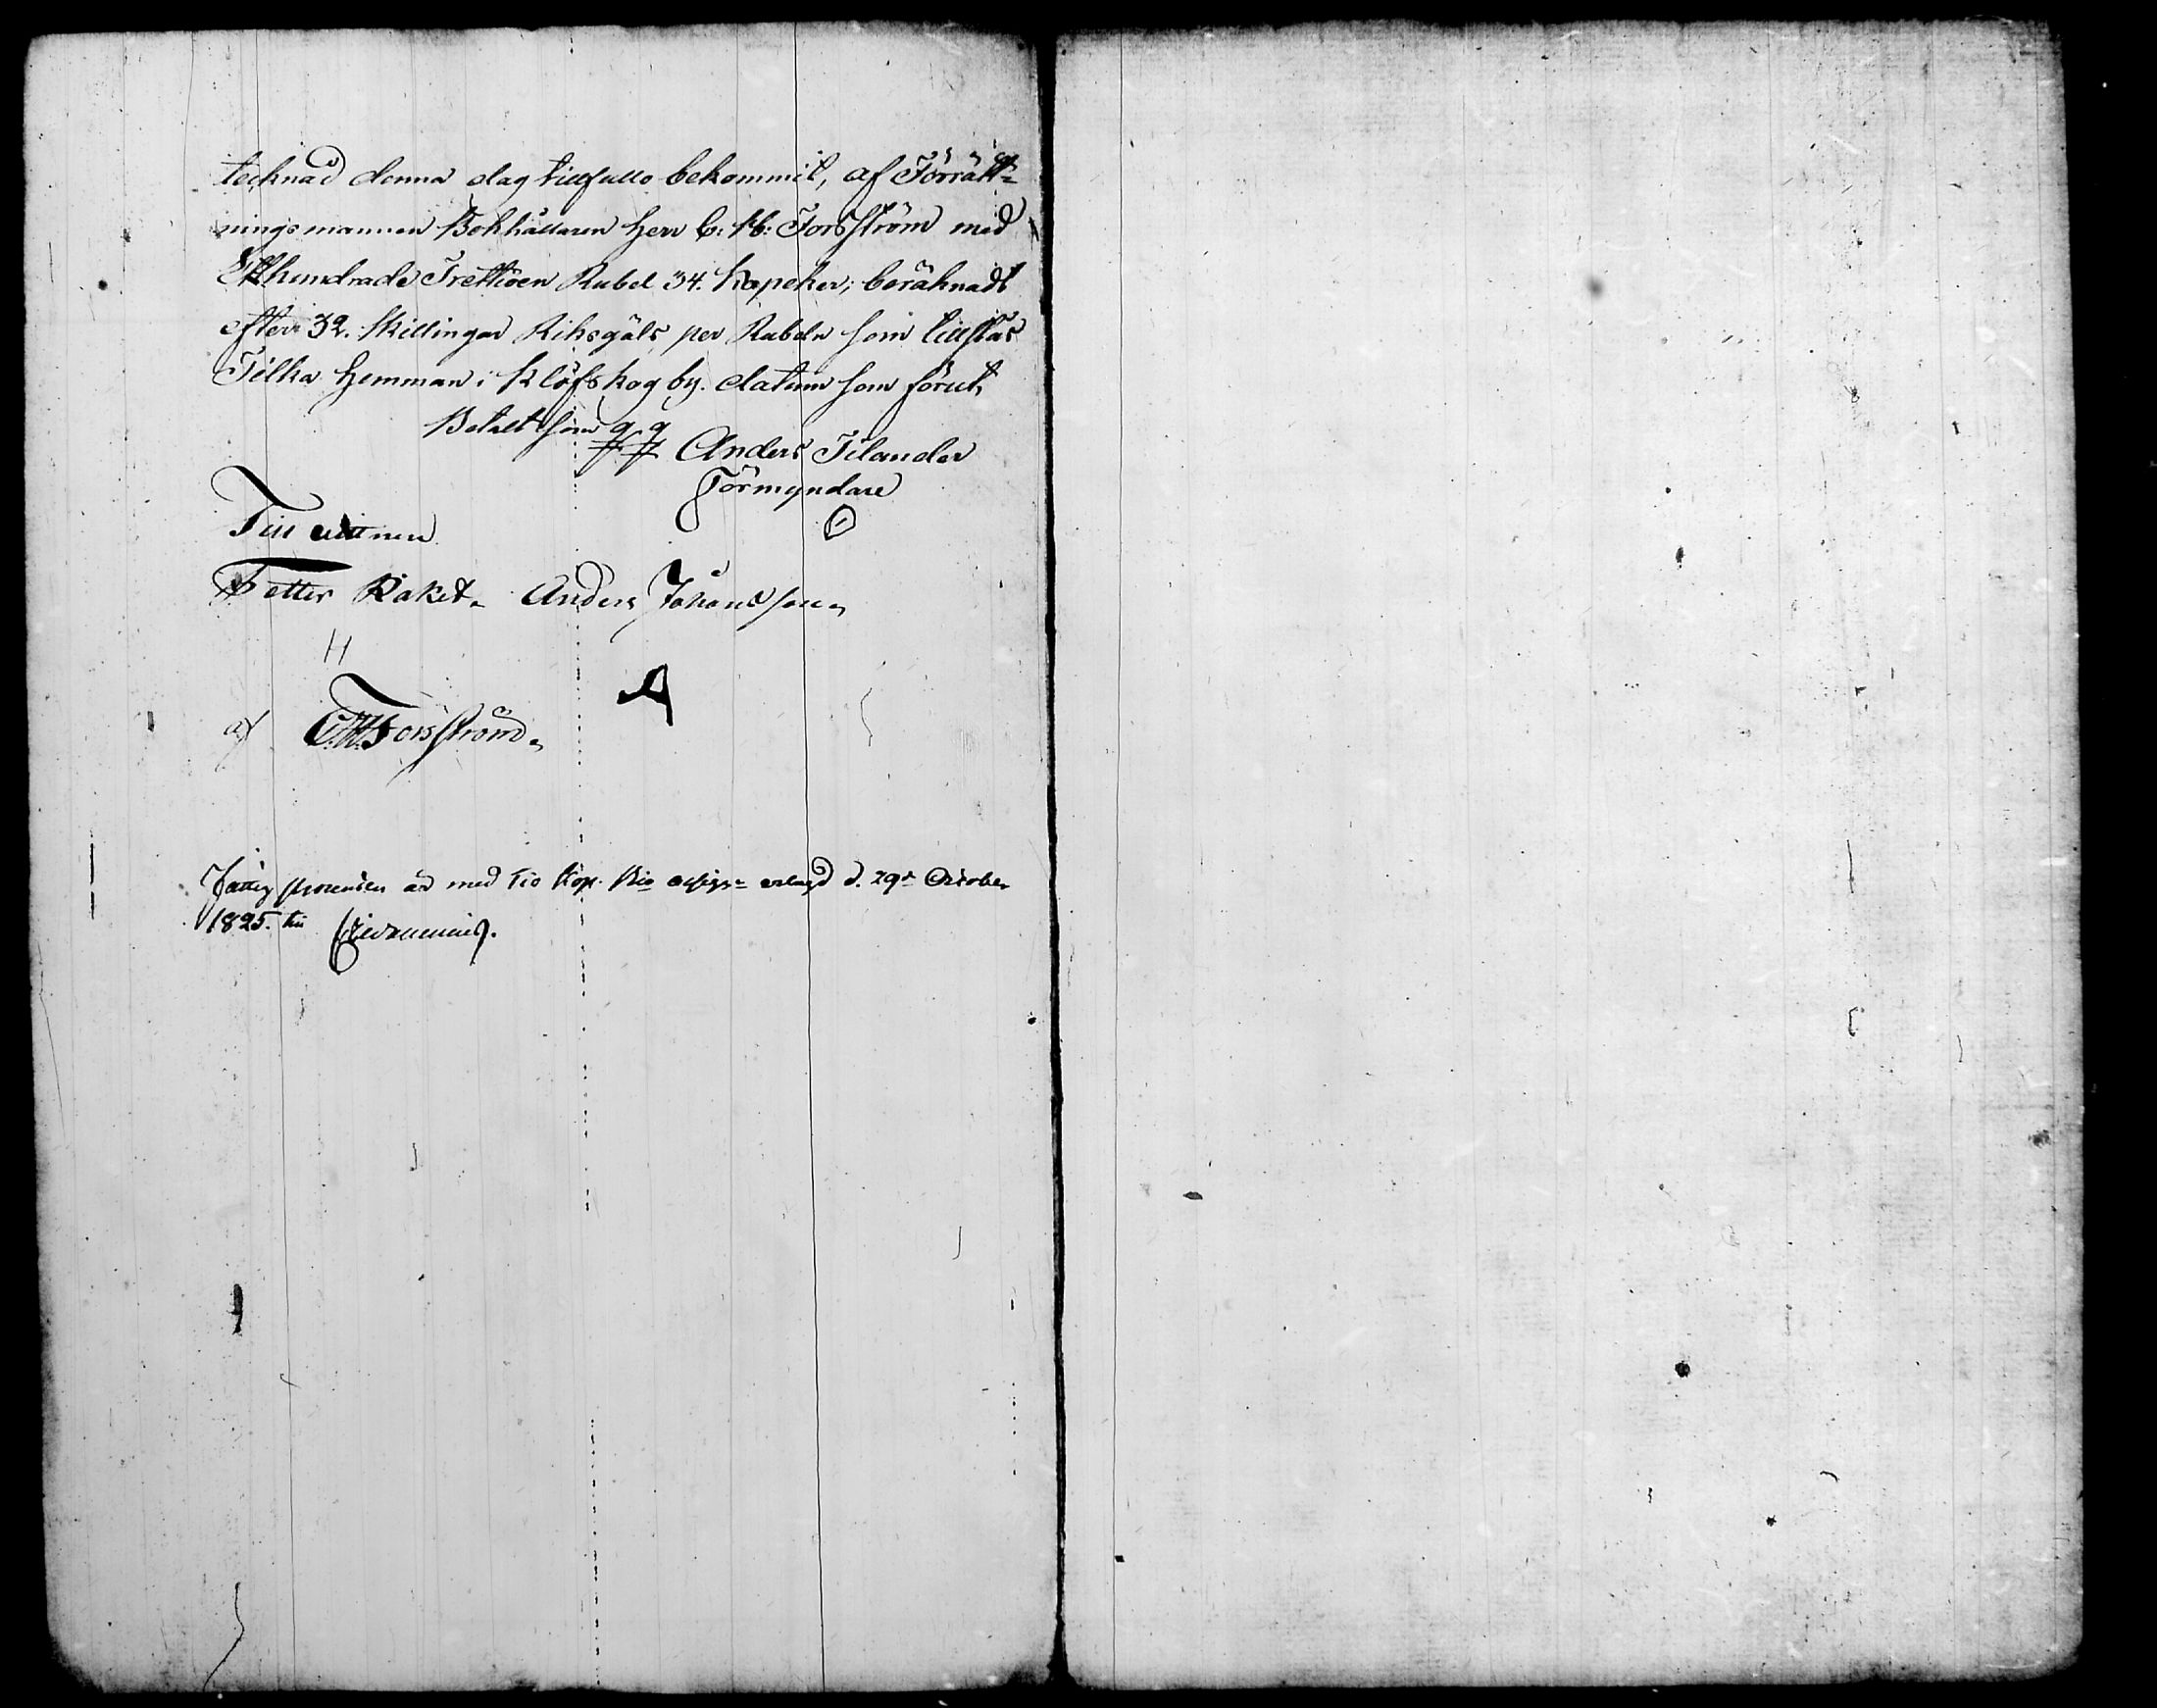 tecknad denna dag tillfullo bekommit, af Förrätt=
ningsmannen Bokhållaren Herr C: W: Forsström med
Etthundrade Trettioen Rubel 34. Kopeker, beräknadt
efter 32. skillingar Riksgäls per Rubeln som tillstås
Tilka Hemman i Klöfskog by. datum som förut,
Betalt som
Anders Filander
Förmyndare
Till vittnen
Petter Raket. Anders Johansson,
H
A
af C.W. Forsström.
Fattig procenten är med Tio Kop. Bco assign= erlagd d. 29de October
1825. till